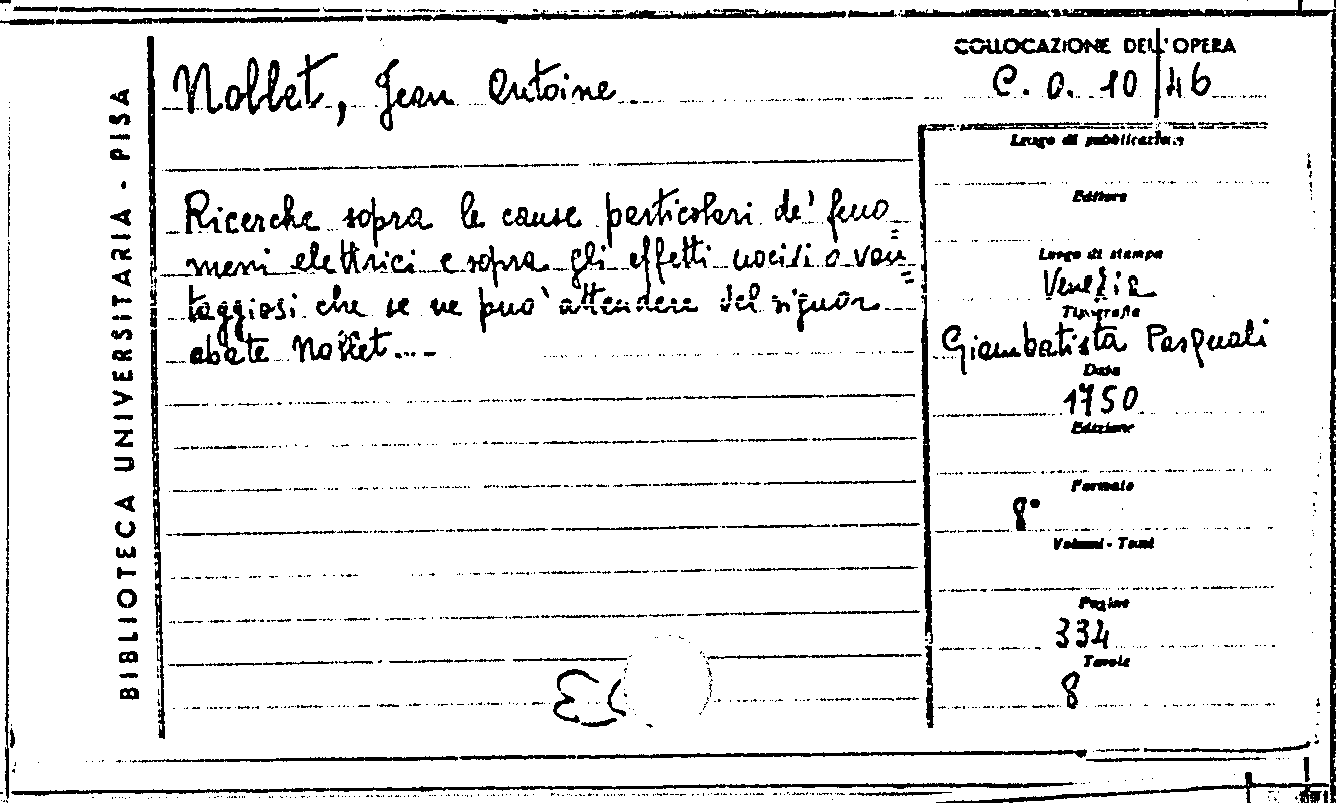 BIBLIOTECA UNIVERSITARIA - PISA
COLLOCAZIONE DELL'OPERA
Nollet, Jean Antoine
C. O. 10 46
Luogo di pubblicazione
Ricerche sopra le cause particolari de' feno=
meni elettrici e sopra gli effetti nocivi o van=
taggiosi che se ne può attendere del signor
abate Nollet...
Editore
Luogo di stampa
Venezia
Tipografia
Giambatista Pasquali
Data
1750
Edizione
Formato
8°
Volumi - Tomi
Pagine
334
Tavole
8